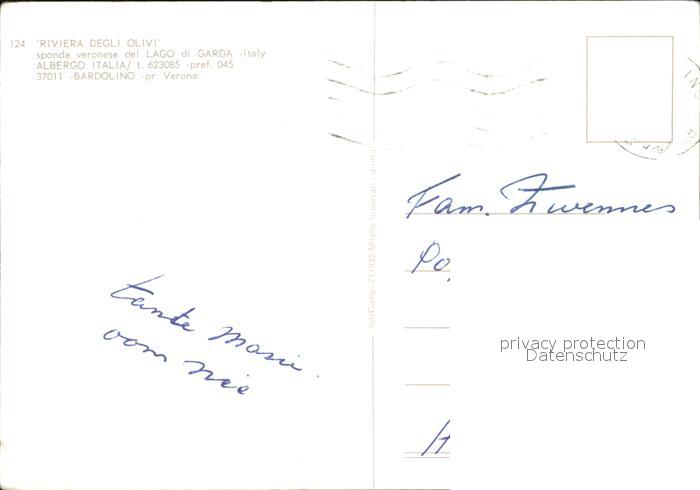 124 'RIVIERA DEGLI OLIVI'
sponda veronese del LAGO di GARDA -Italy
ALBERGO ITALIA/ t. 623085 -pref. 045
37011 -BARDOLINO -pr. Verona
tante Marie
oom
Fam.
Po
H
privacy protection
Datenschutz